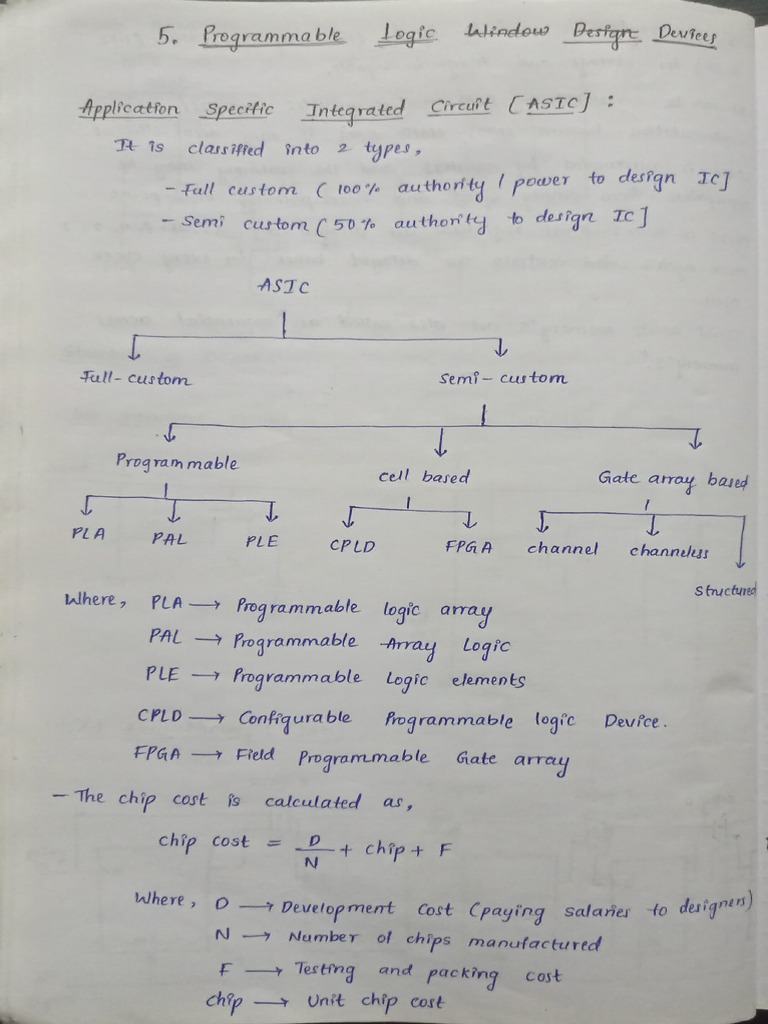 5. Programmable Logic Window Design Devices
Application Specific Integrated Circuit [ASIC] :
It is classified into 2 types,
- Full custom ( 100% authority / power to design IC]
- Semi custom ( 50% authority to design IC]
ASIC
Full-custom
Semi-custom
Programmable
cell based
Gate array based
PLA
PAL
PLE
CPLD
FPGA
channel
channeless
structured
Where, PLA → Programmable logic array
PAL → Programmable Array Logic
PLE → Programmable Logic elements
CPLD → Configurable Programmable logic Device.
FPGA → Field Programmable Gate array
- The chip cost is calculated as,
chip cost = D/N + chip + F
Where, D → Development cost (paying salaries to designers)
N → Number of chips manufactured
F → Testing and packing cost
chip → Unit chip cost